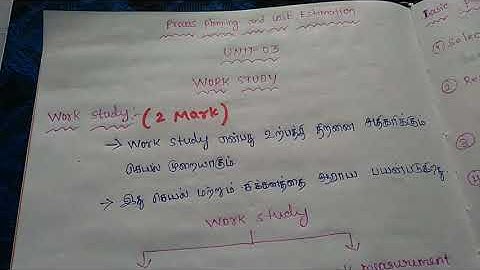 Process Planning and Cost Estimation
UNIT-03
WORK STUDY
Work study:- (2 Mark)
→ Work study என்பது உற்பத்தி திறனை அதிகரிக்கும்
செயல் முறையாகும்
→ இது செயல் மற்றும் சிக்கனத்தை ஆராய பயன்படுகிறது.
Work study
measurument
Basic
Selec